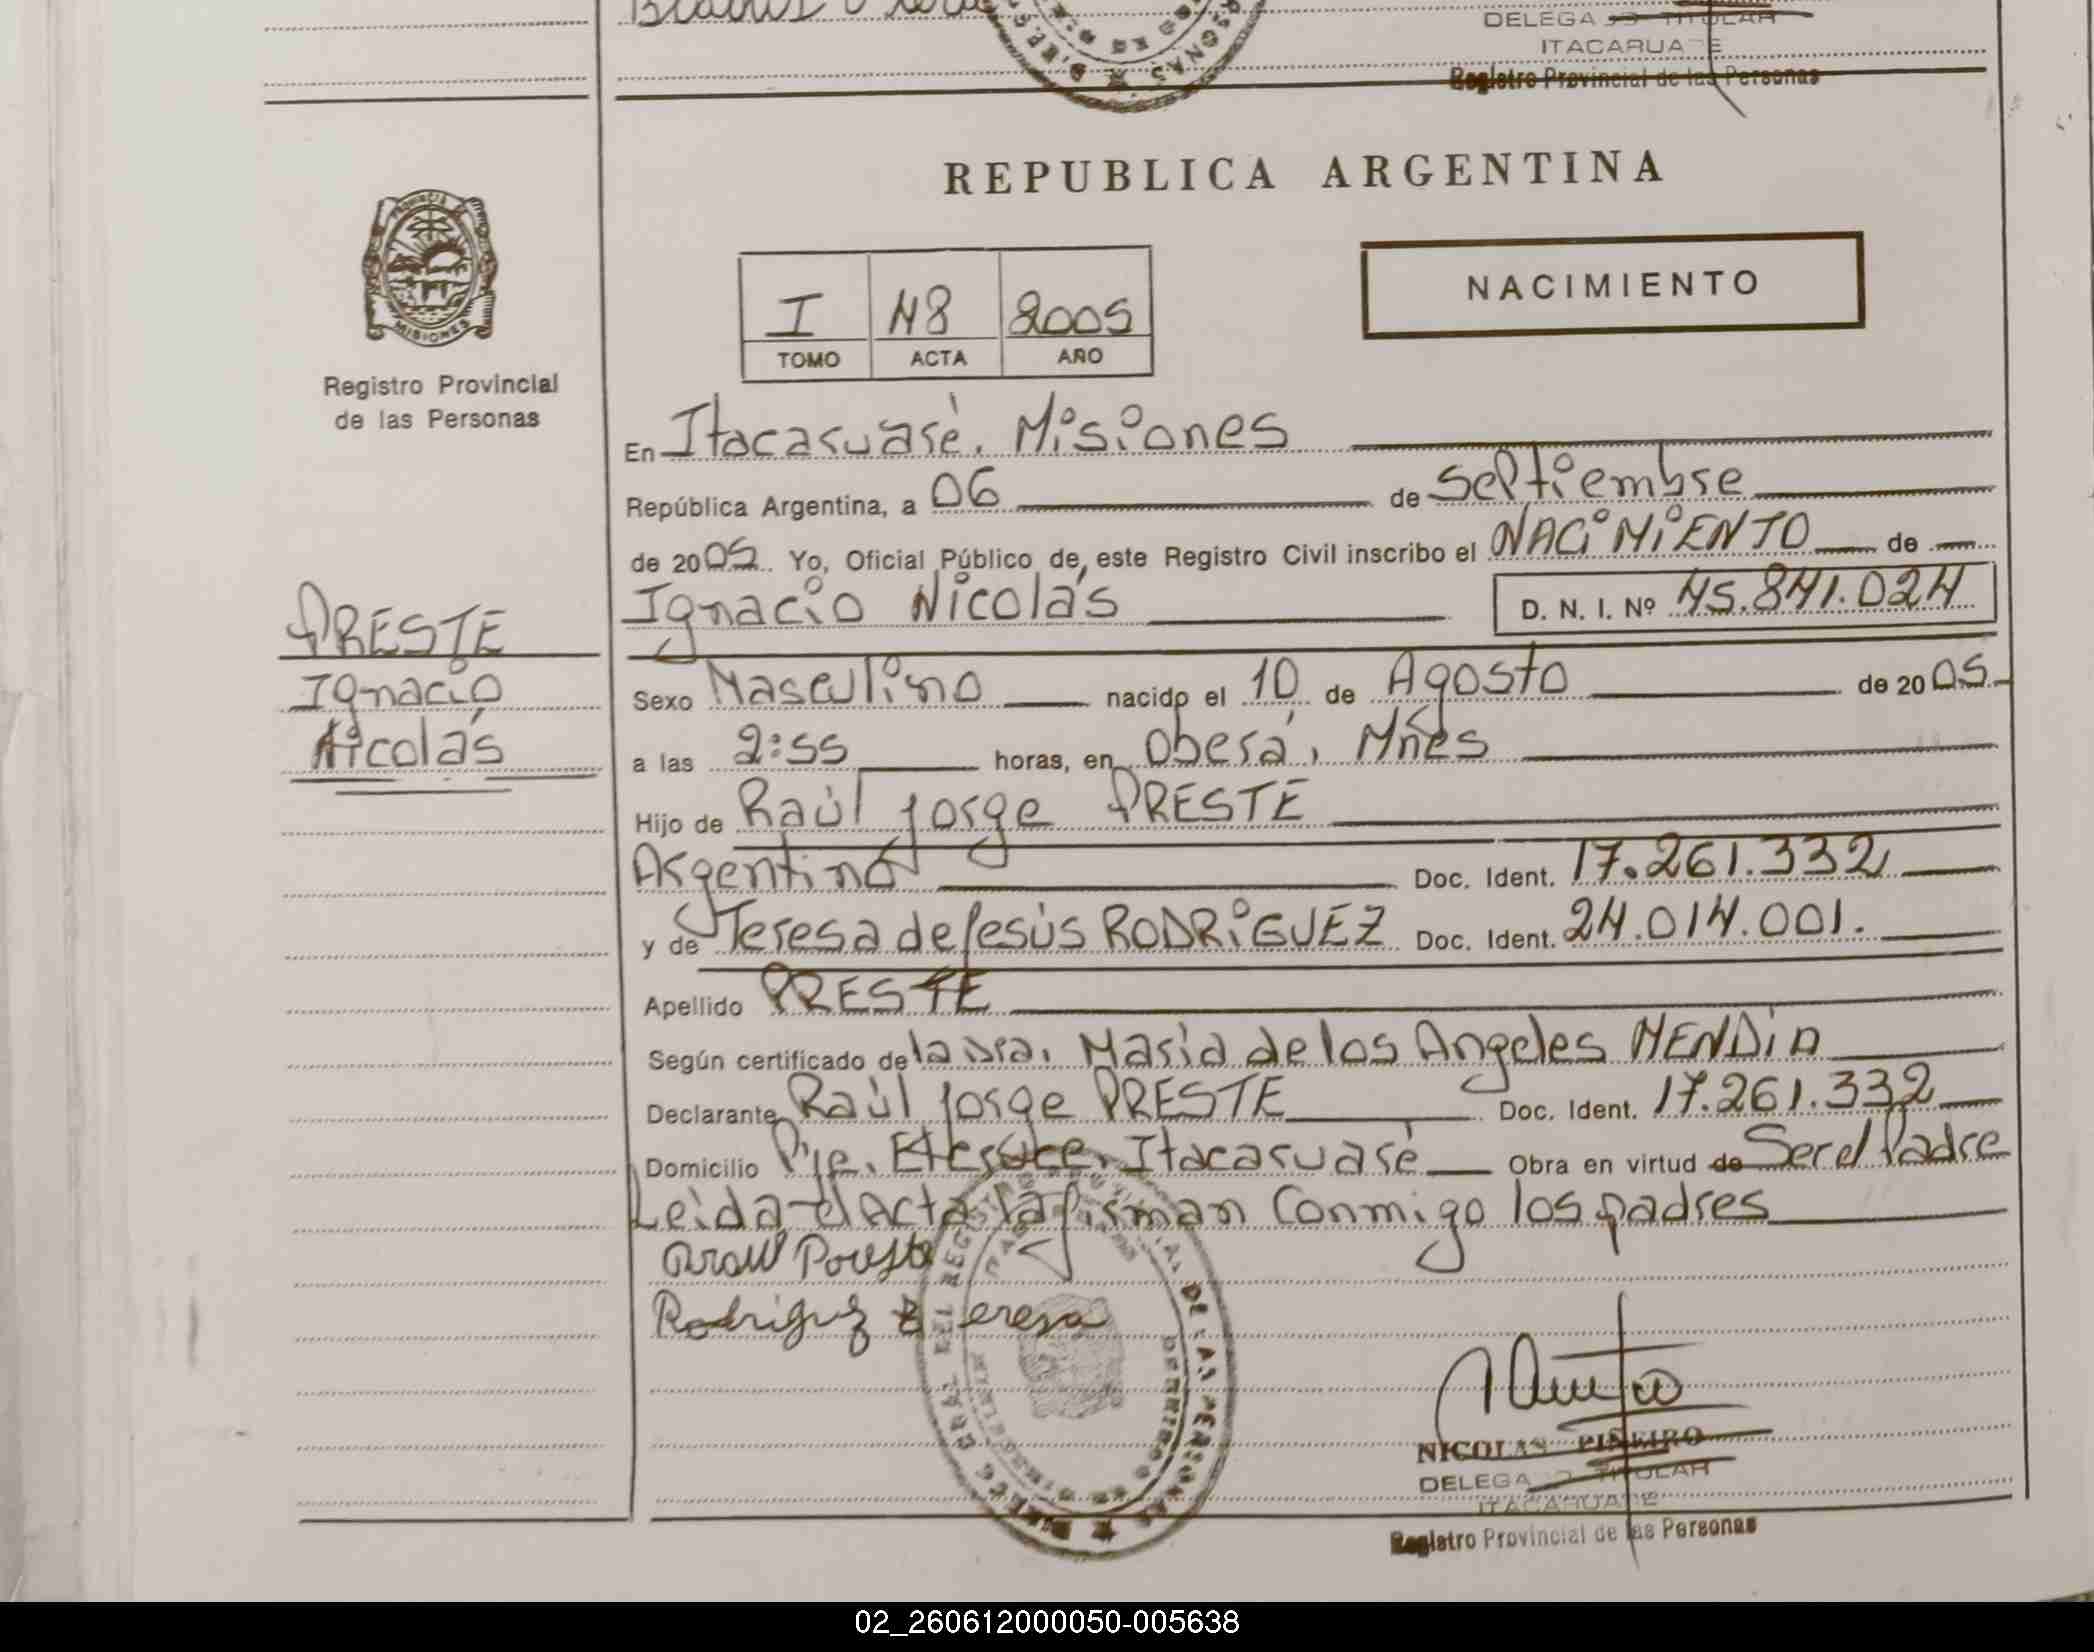 DELEGADO TITULAR
ITACARUARE
Registro Provincial de las Personas
REPUBLICA ARGENTINA
PROVINCIA DE
MISIONES
Registro Provincial
de las Personas
I 48 2005
TOMO ACTA AÑO
NACIMIENTO
En Itacaruaré, Misiones
República Argentina, a 06 de Septiembre
de 2005. Yo, Oficial Público de este Registro Civil inscribo el NACIMIENTO de
Ignacio Nicolás D. N. I. Nº 45.841.024
PRESTE
Ignacio
Nicolás
Sexo Masculino nacido el 10 de Agosto de 2005
a las 2:55 horas, en Oberá, Mnes
Hijo de Raúl Jorge PRESTE
Argentino Doc. Ident. 17.261.332
y de Teresa de Jesús RODRIGUEZ Doc. Ident. 24.014.001.
Apellido PRESTE
Según certificado de la Dra. Maria de los Angeles MENDiA
Declarante Raúl Jorge PRESTE Doc. Ident. 17.261.332
Domicilio Pje. Itacaruaré Obra en virtud de Ser el Padre
Leida el Acta la firman Conmigo los padres
Rodriguez teresa
NICOLAS PIÑEIRO
DELEGADO TITULAR
ITACARUARE
Registro Provincial de las Personas
02_260612000050-005638